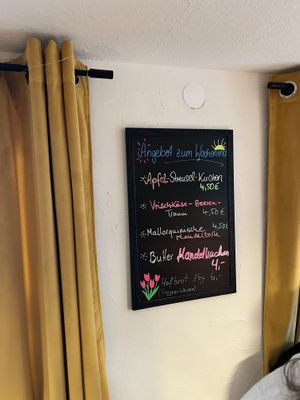 Angebot zum Wochenend
Apfel-Streusel-Kuchen
4,50€
Frischkäse-Beeren-
Traum 4,50€
Mallorquinische 4,50€
Mandeltorte
Butter Mandelkuchen
4,-
Hofbrot 1kg 6,-